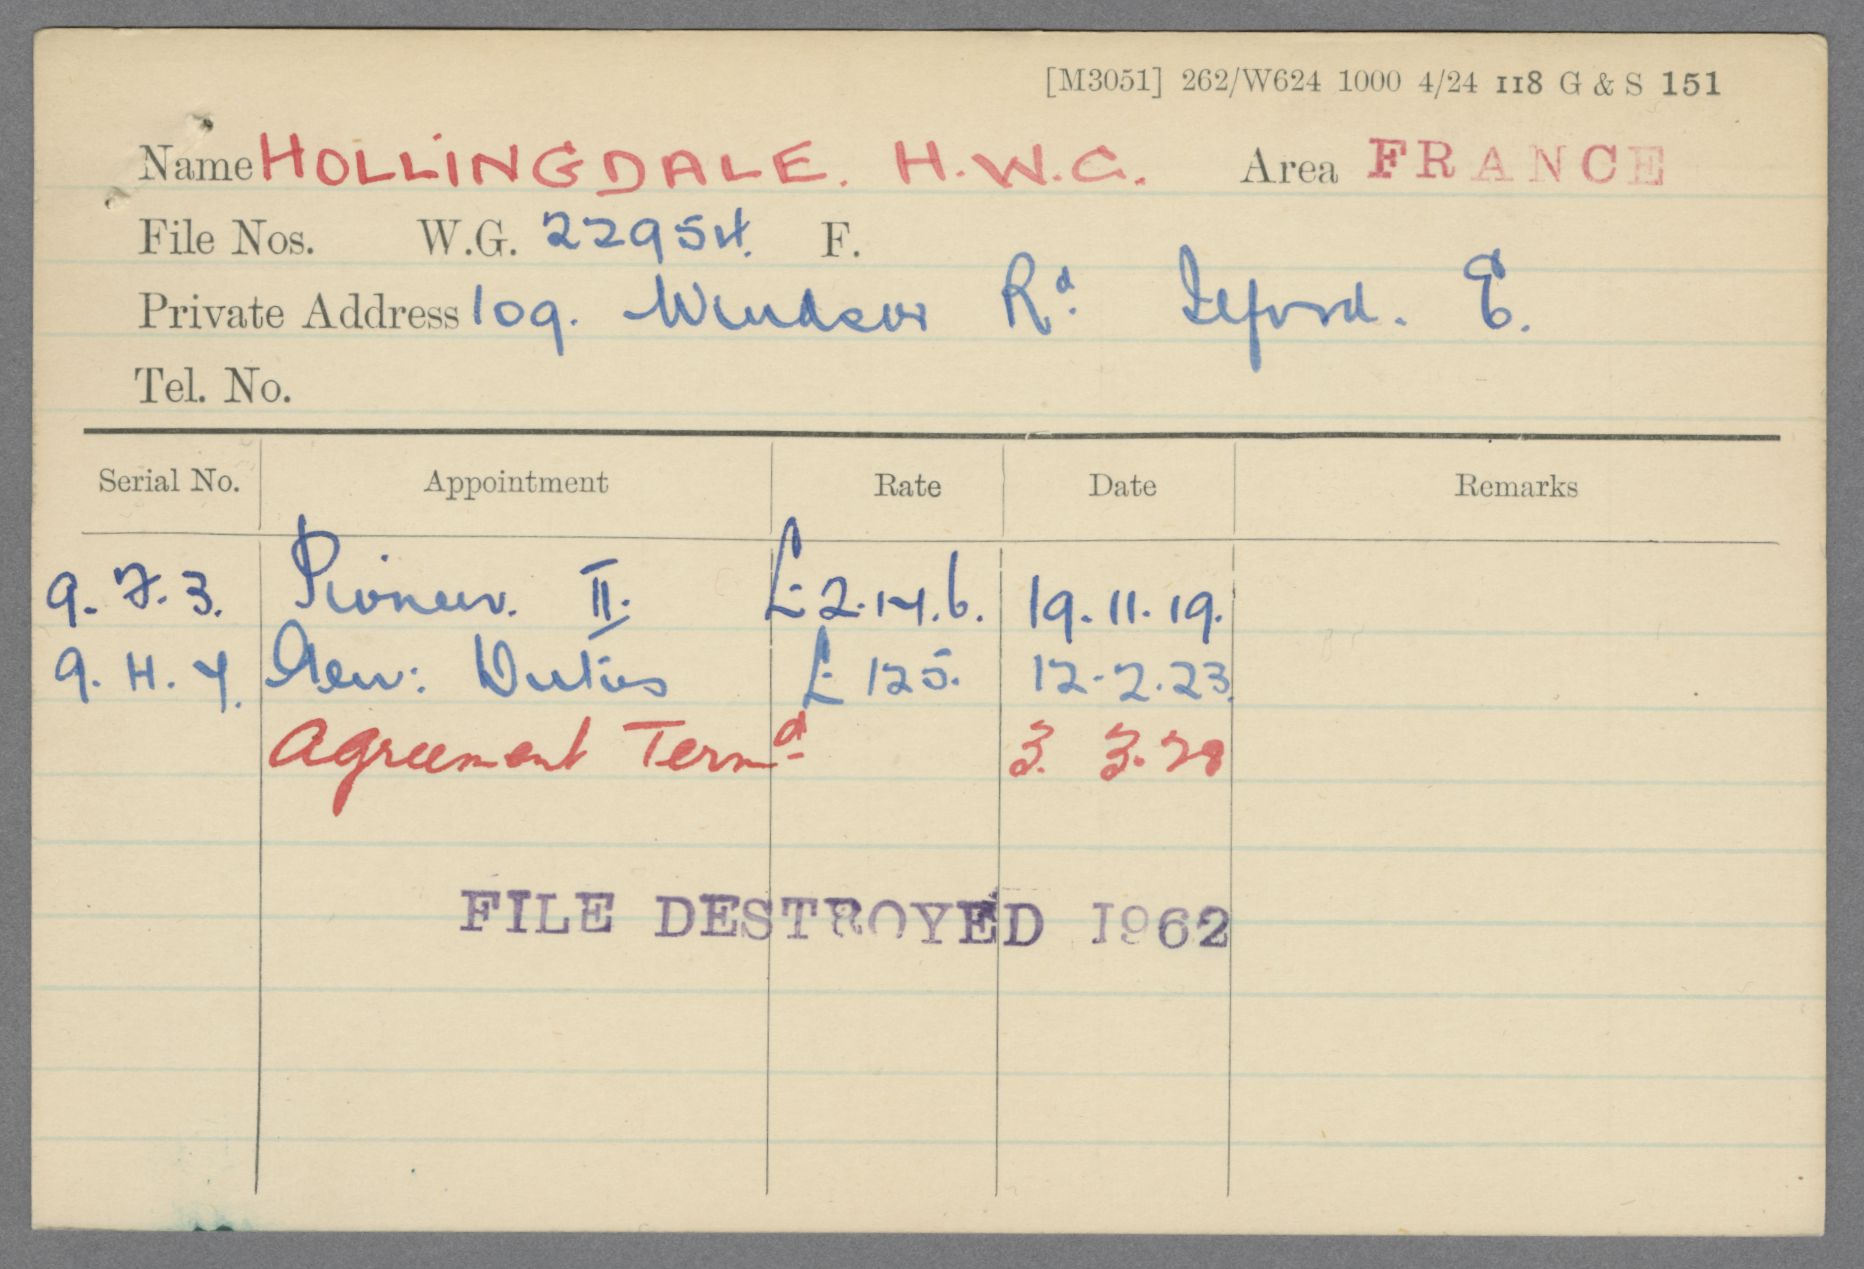 [M3051] 262/W624 1000 4/24 118 G & S 151
Name HOLLINGDALE. H.W.G. Area FRANCE
File Nos. W.G. 22954. F.
Private Address 109. Windsor Rd. Ilford. E.
Tel. No.
Serial No. Appointment Rate Date Remarks
9. 7. 3. Pioneer. II. £2.14.6. 19.11.19.
9. H. Y. Gen: Duties £125. 12.2.23.
Agreement Termd 3. 3.28
FILE DESTROYED 1962